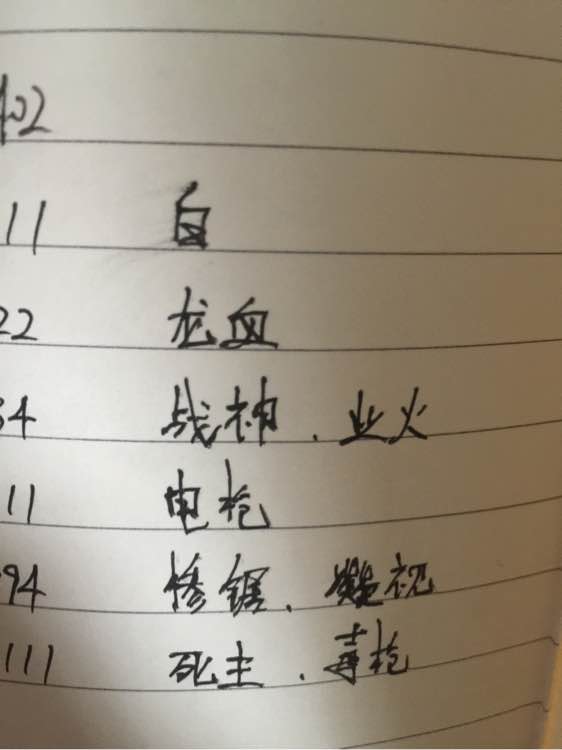 402
11 白
22 龙血
34 战神、业火
11 电枪
94 惨锯、视
111 死主、毒枪